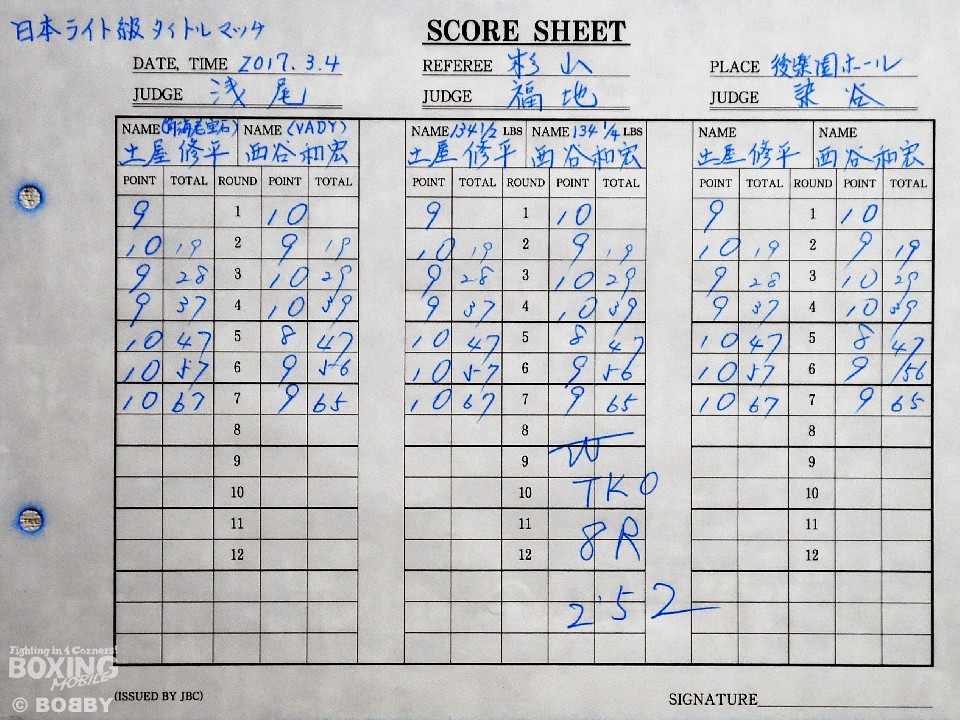 日本ライト級タイトルマッチ
SCORE SHEET
DATE, TIME 2017.3.4 REFEREE 杉山 PLACE 後楽園ホール
JUDGE 浅尾 JUDGE 福地 JUDGE 染谷
NAME (角海老宝石) NAME (VADY) NAME 134 1/2 LBS NAME 134 1/4 LBS NAME NAME
土屋修平 西谷和宏 土屋修平 西谷和宏 土屋修平 西谷和宏
POINT TOTAL ROUND POINT TOTAL POINT TOTAL ROUND POINT TOTAL POINT TOTAL ROUND POINT TOTAL
9 1 10 9 1 10 9 1 10
10 19 2 9 19 10 19 2 9 19 10 19 2 9 19
9 28 3 10 29 9 28 3 10 29 9 28 3 10 29
9 37 4 10 39 9 37 4 10 39 9 37 4 10 39
10 47 5 8 47 10 47 5 8 47 10 47 5 8 47
10 57 6 9 56 10 57 6 9 56 10 57 6 9 56
10 67 7 9 65 10 67 7 9 65 10 67 7 9 65
8 8 8
9 9 W 9
10 10 TKO 10
11 11 8R 11
12 12 12
2'52
Fighting in 4 Corners!
BOXING
MOBILE
© BOBBY
(ISSUED BY JBC) SIGNATURE